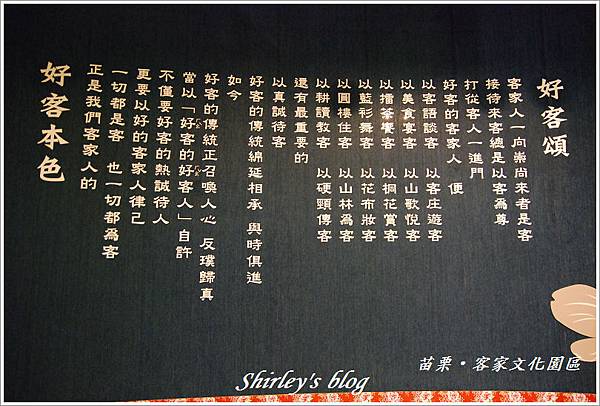 好客頌
客家人一向崇尚來者是客
接待來客總是以客為尊
打從客人一進門
好客的客家人 便
以客語談客 以客庄遊客
以美食宴客 以山歌悅客
以擂茶饗客 以桐花賞客
以藍衫舞客 以花布妝客
以圓樓住客 以山林為客
以耕讀教客 以硬頸傳客
還有最重要的
以真誠待客
好客的傳統綿延相承 與時俱進
如今
好客的傳統正召喚人心 反璞歸真
當以「好客的好客人」自許
不僅要好客的熱誠待人
更要以好的客家人律己
一切都是客 也一切都為客
正是我們客家人的
好客本色
苗栗•客家文化園區
Shirley's blog